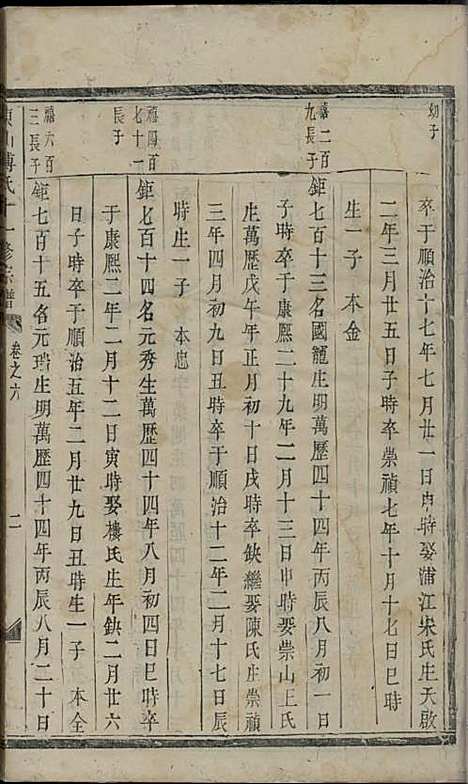 幼子
卒于順治十七年七月廿一日申時娶浦江宋氏生天啟
二年三月廿五日子時卒崇禎七年十月十七日巳時
生一子 本金
禧二百九長子
鉅七百十三名國寵生明萬歷四十四年丙辰八月初一
子時卒于康熙二十九年二月十三日申時娶崇山王氏
生萬歷戊午年正月初十日戌時卒缺繼娶陳氏生崇禎
三年四月初九日丑時卒于順治十二年二月十七日辰
時生一子 本忠
禧四百七十一長子
鉅七百十四名元秀生萬歷四十四年八月初四日巳時卒
于康熙二年二月十二日寅時娶樓氏生年缺二月廿六
日子時卒于順治五年二月廿九日丑時生一子 本全
禧六百三長子
鉅七百十五名元瑞生明萬歷四十四年丙辰八月二十日
傅氏十一修宗譜 卷之六 二